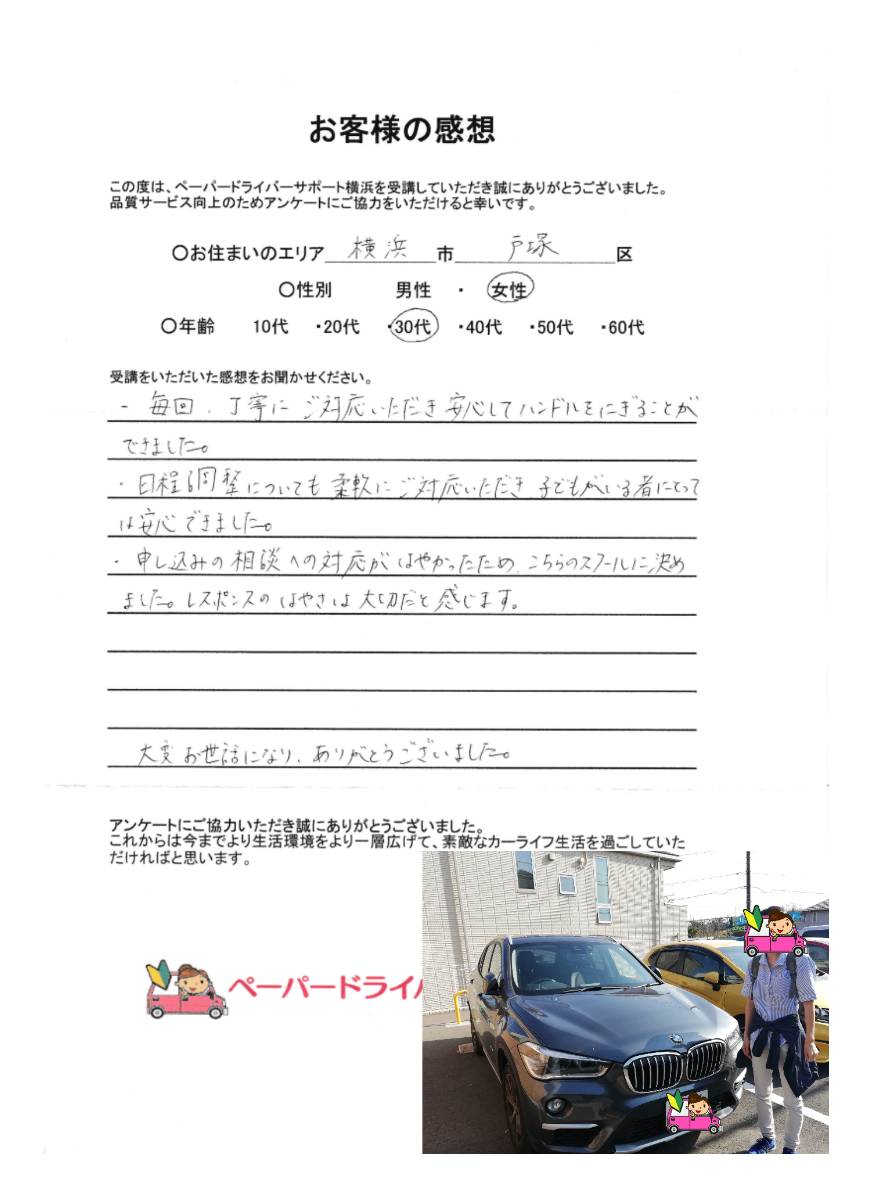 お客様の感想
この度は、ペーパードライバーサポート横浜を受講していただき誠にありがとうございました。
品質サービス向上のためアンケートにご協力をいただけると幸いです。
〇お住まいのエリア 横浜 市 戸塚 区
〇性別 男性 ・ 女性
〇年齢 10代 ・20代 ・30代 ・40代 ・50代 ・60代
受講をいただいた感想をお聞かせください。
・毎回、丁寧に ご対応いただき 安心して ハンドルをにぎることが
できました。
・日程調整についても 柔軟に ご対応いただき 子どもがいる者にとって
は安心できました。
・申し込みの相談への対応が はやかったため、こちらのスクールに決め
ました。レスポンスの はやさは 大切だと 感じます。
大変お世話になり、ありがとうございました。
アンケートにご協力いただき誠にありがとうございました。
これからは今までより生活環境をより一層広げて、素敵なカーライフ生活を過ごしていた
だければと思います。
ペーパードライバ